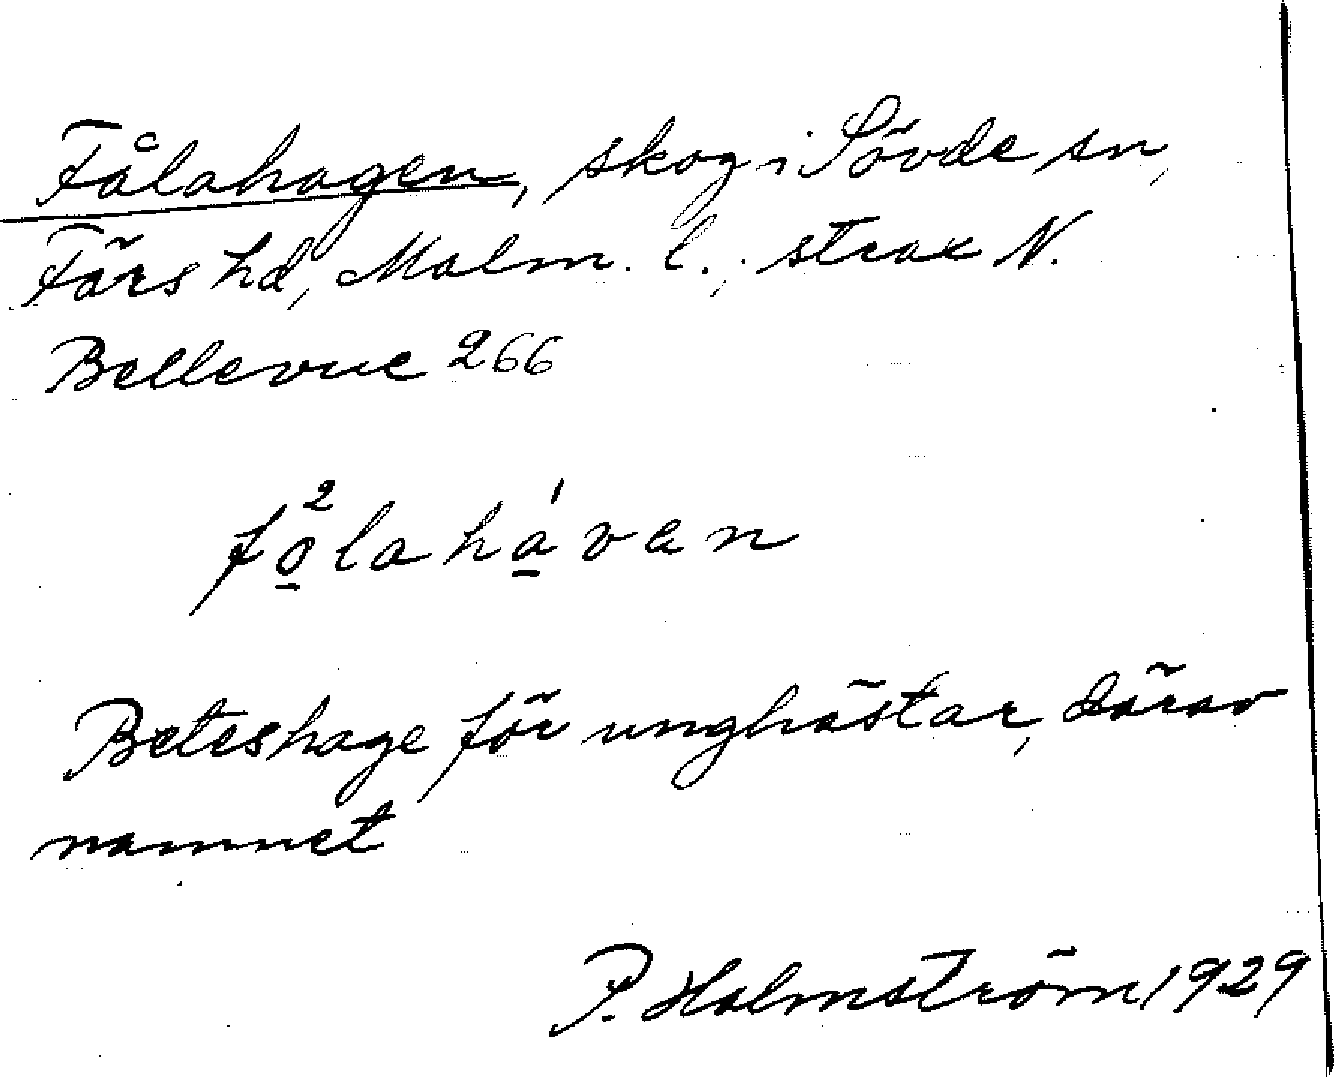 Fålahagen, skog i Sövde sn,
Färs hd, Malm. l., strax N.
Bellevue 266
fo̱²lahá̱van
Beteshage för unghästar, därav
namnet
P. Holmström 1929